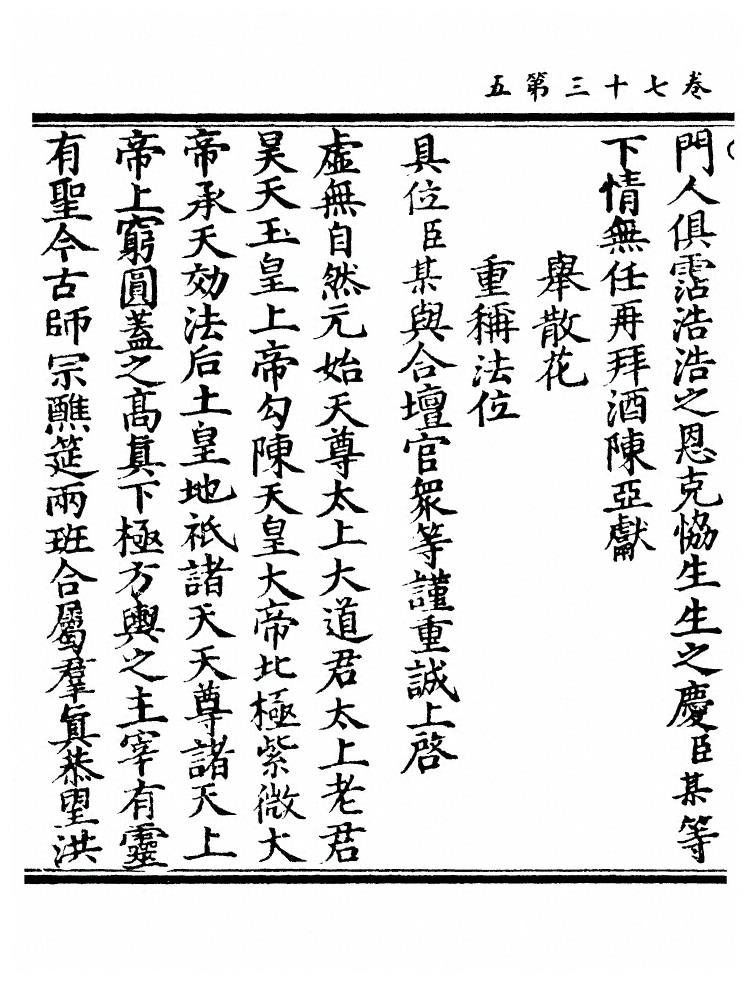 卷七十三第五
門人俱霑浩浩之恩克恊生生之慶臣某等
下情無任再拜酒陳亞獻
舉散花
重稱法位
具位臣某與合壇官衆等謹重誠上啓
虛無自然元始天尊太上大道君太上老君
昊天玉皇上帝勾陳天皇大帝北極紫微大
帝承天効法后土皇地祇諸天天尊諸天上
帝上窮圓蓋之髙眞下極方輿之主宰有靈
有聖今古師宗醮筵兩班合屬羣眞恭望洪